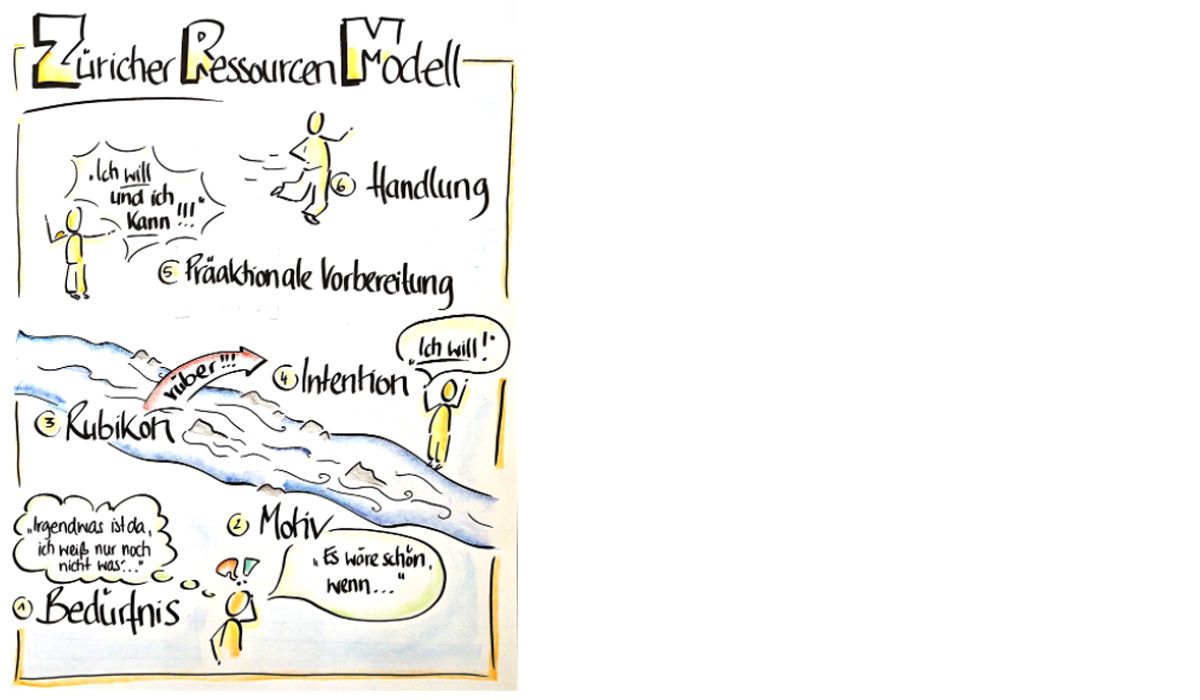 Züricher Ressourcen Modell
„Ich will
und ich
kann!!!“
6 Handlung
5 Präaktionale Vorbereitung
„Ich will!“
rüber!!!
4 Intention
3 Rubikon
„Irgendwas ist da,
ich weiß nur noch
nicht was...“
2 Motiv
„Es wäre schön,
wenn...“
1 Bedürfnis